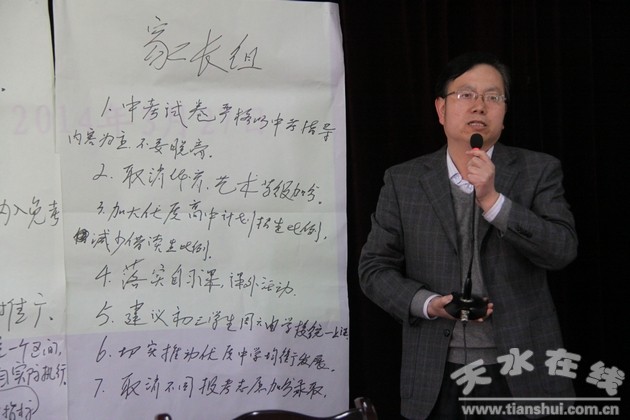 家长组
1. 中考试卷严格以中学指导
内容为主,不要脱离.
2. 取消体育、艺术等级加分.
3. 加大优质高中计划招生比例,
减少借读生比例.
4. 落实自习课,课外运动.
5. 建议初三学生周六由学校统一上课
6. 切实推动优质中学均衡发展.
7. 取消不同投考志愿加分录取.
内入免考
推广.
一个区间,
实际执行
指标
2014年
天水在线
www.tianshui.com.cn